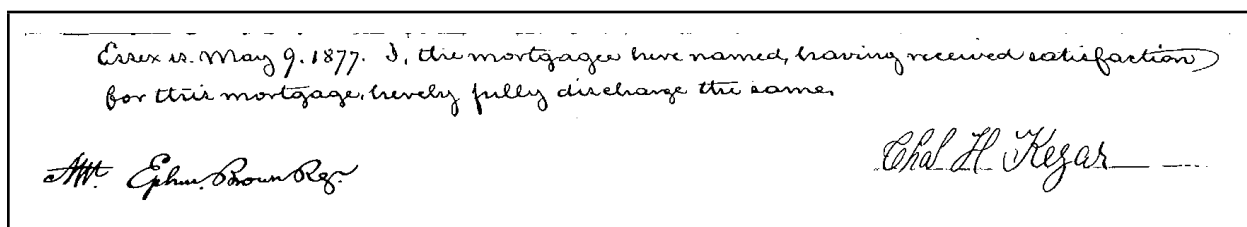 Essex ss. May 9. 1877. I, the mortgagee here named, having received satisfaction
for this mortgage, hereby fully discharge the same.
Att. Ephm. Brown Reg.
Chas H Kezar